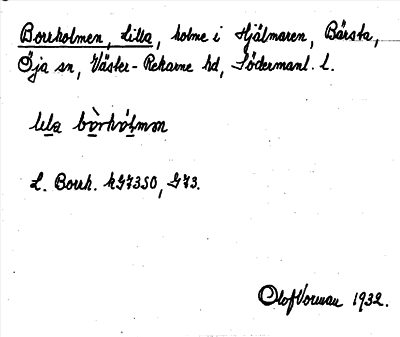 Borrholmen, Lilla, holme i Hjälmaren, Bärsta,
Öja sn, Väster-Rekarne hd, Södermanl. l.
lila bòrhólmən
L. Borrh. hG7350, G73.
Olof Vorman 1932.